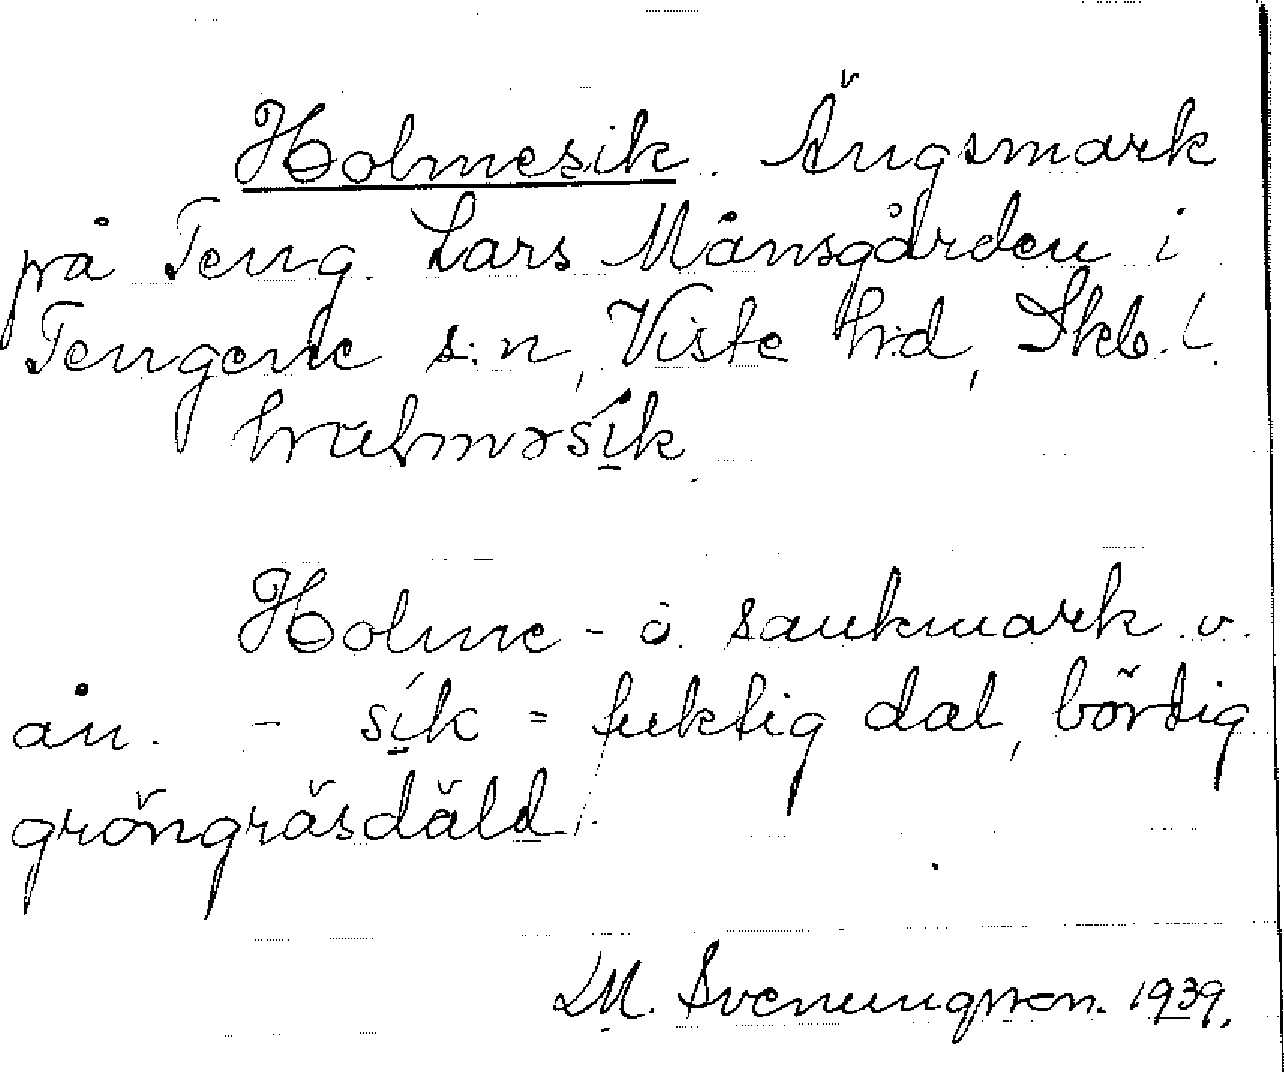 Holmesik. Ängsmark
på Teng. Lars Månsgården i
Tengene s:n, Viste hd, Skb. l.
Holme - ö. sankmark v.
ån. - sik = fuktig dal, bördig
gröngräsdäld.
LM. Svenungsson. 1939.